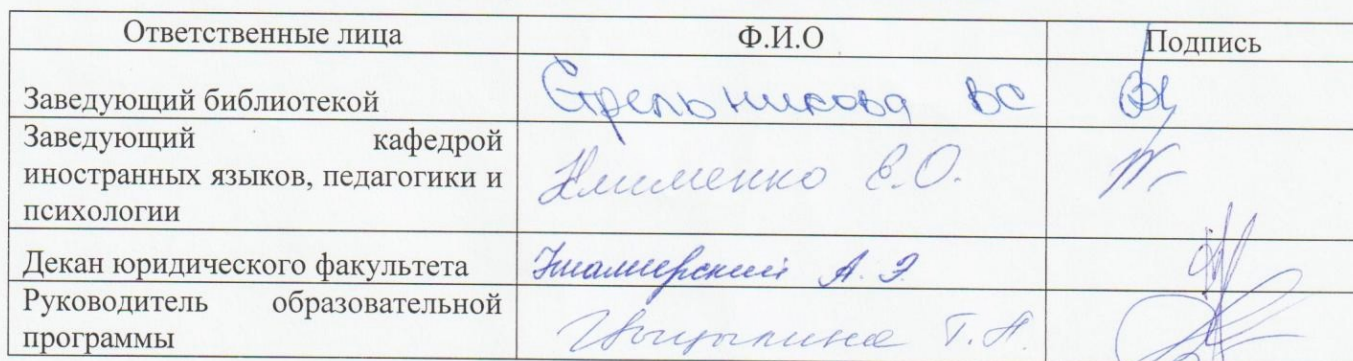 Ответственные лица Ф.И.О Подпись
Заведующий библиотекой Стрельникова ВС
Заведующий кафедрой
иностранных языков, педагогики и Клименко Е.О.
психологии
Декан юридического факультета А. Э.
Руководитель образовательной
программы